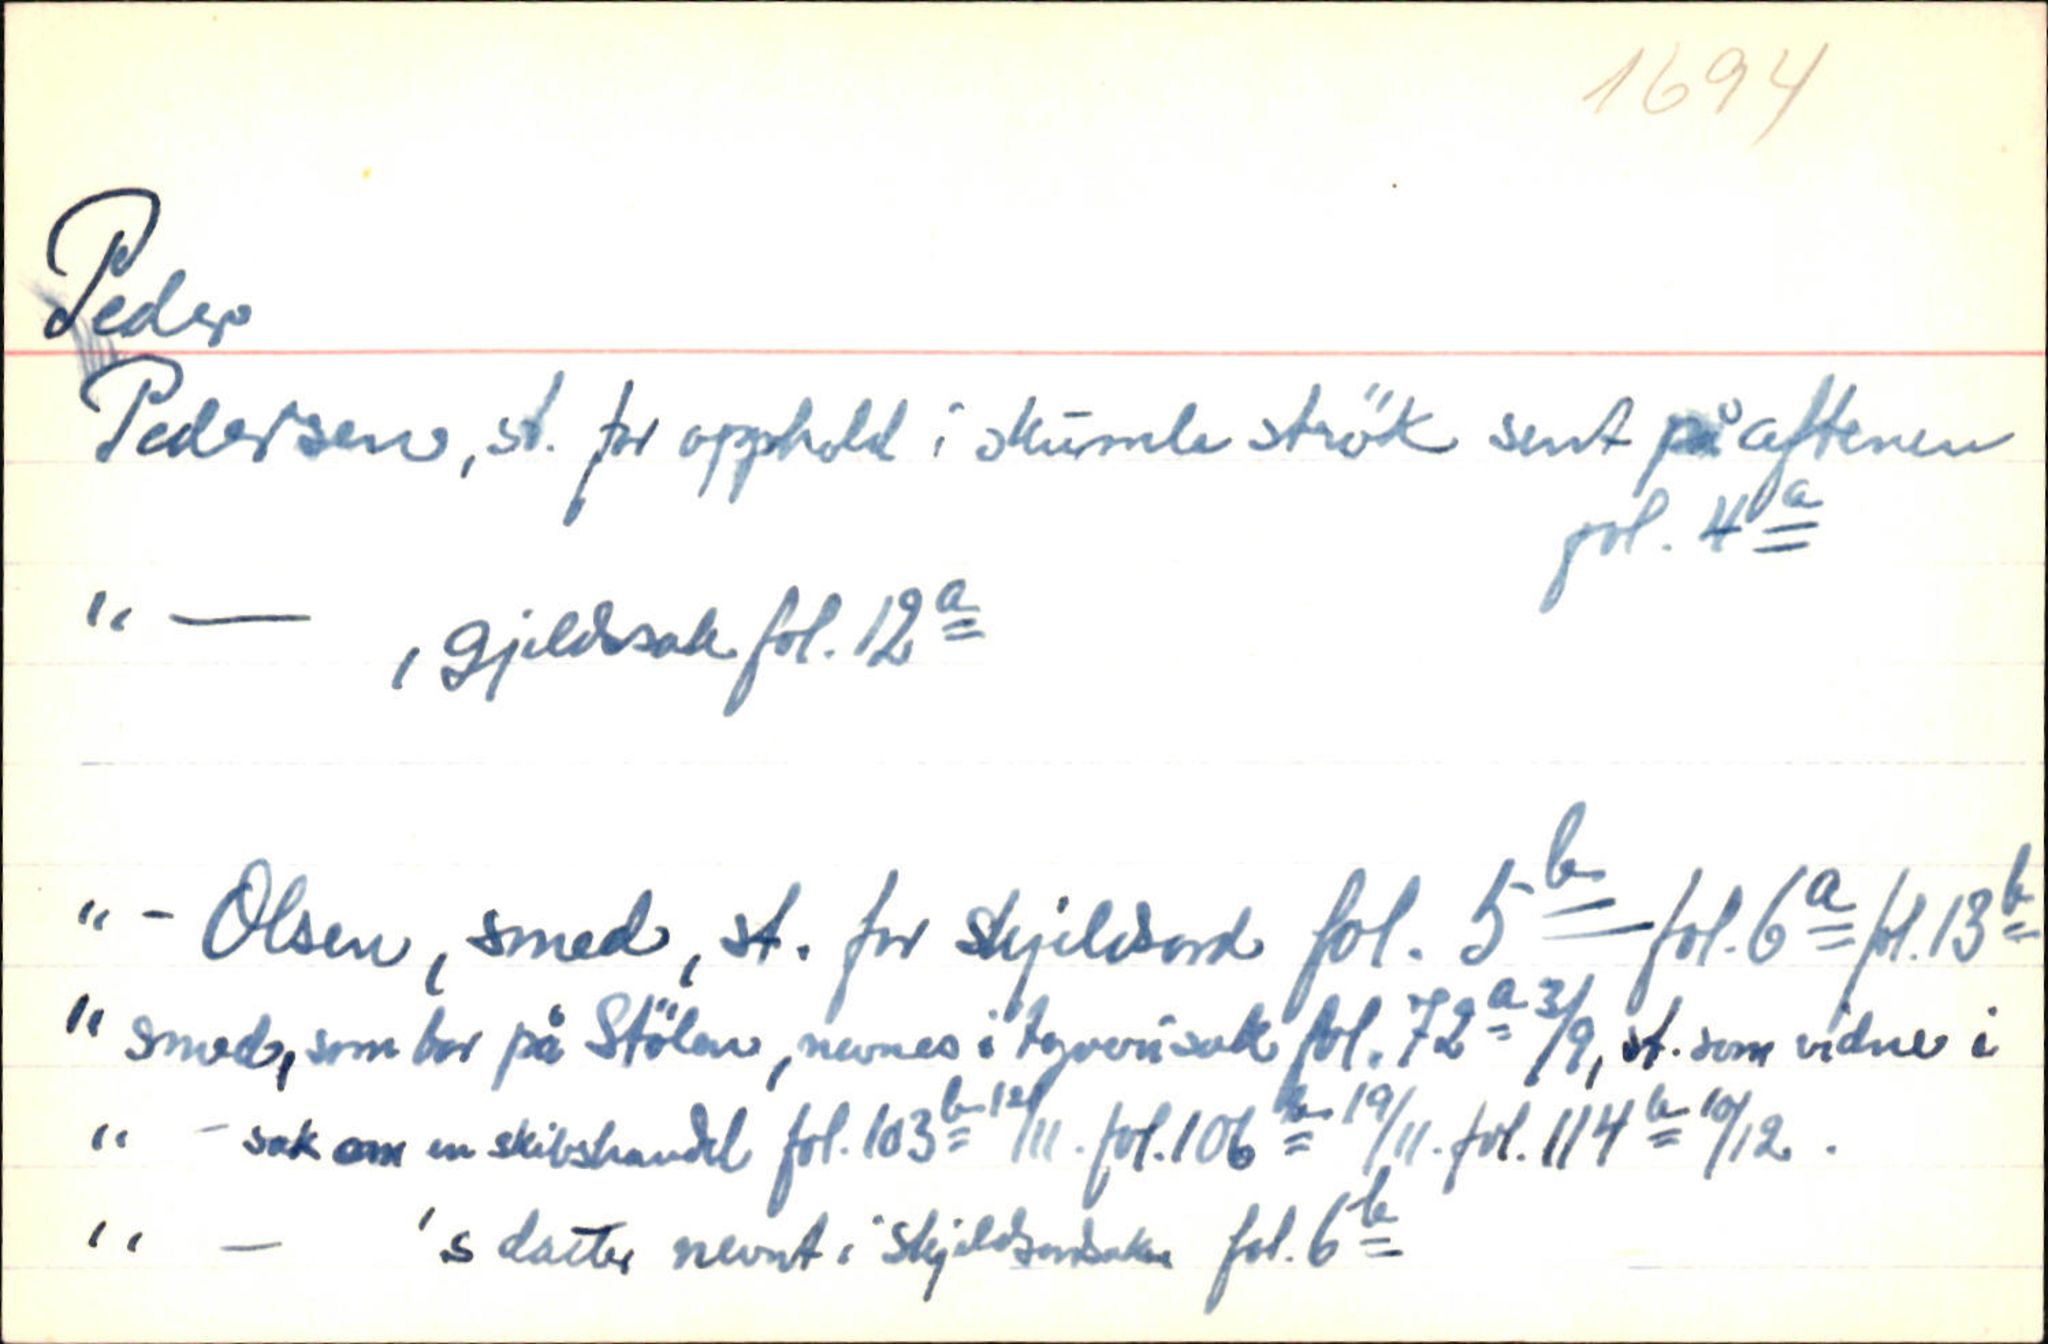 1694
Peder
Pedersen, st. for opphold i skumle strök sent på aftenen
fol. 4a
" — , gjeldssak fol. 12a
" - Olsen, smed, st. for skjeldsord fol. 5b — fol. 6a fol. 13b
" smed, som bor på Stölen, nevnes i tyverisak fol. 72a 3/9, st. som vidne i
" - sak om en skibshandel fol. 103b 12/11. fol. 106b 19/11. fol. 114b 10/12.
" — 's datter nevnt i skjeldsordsaken fol. 6b